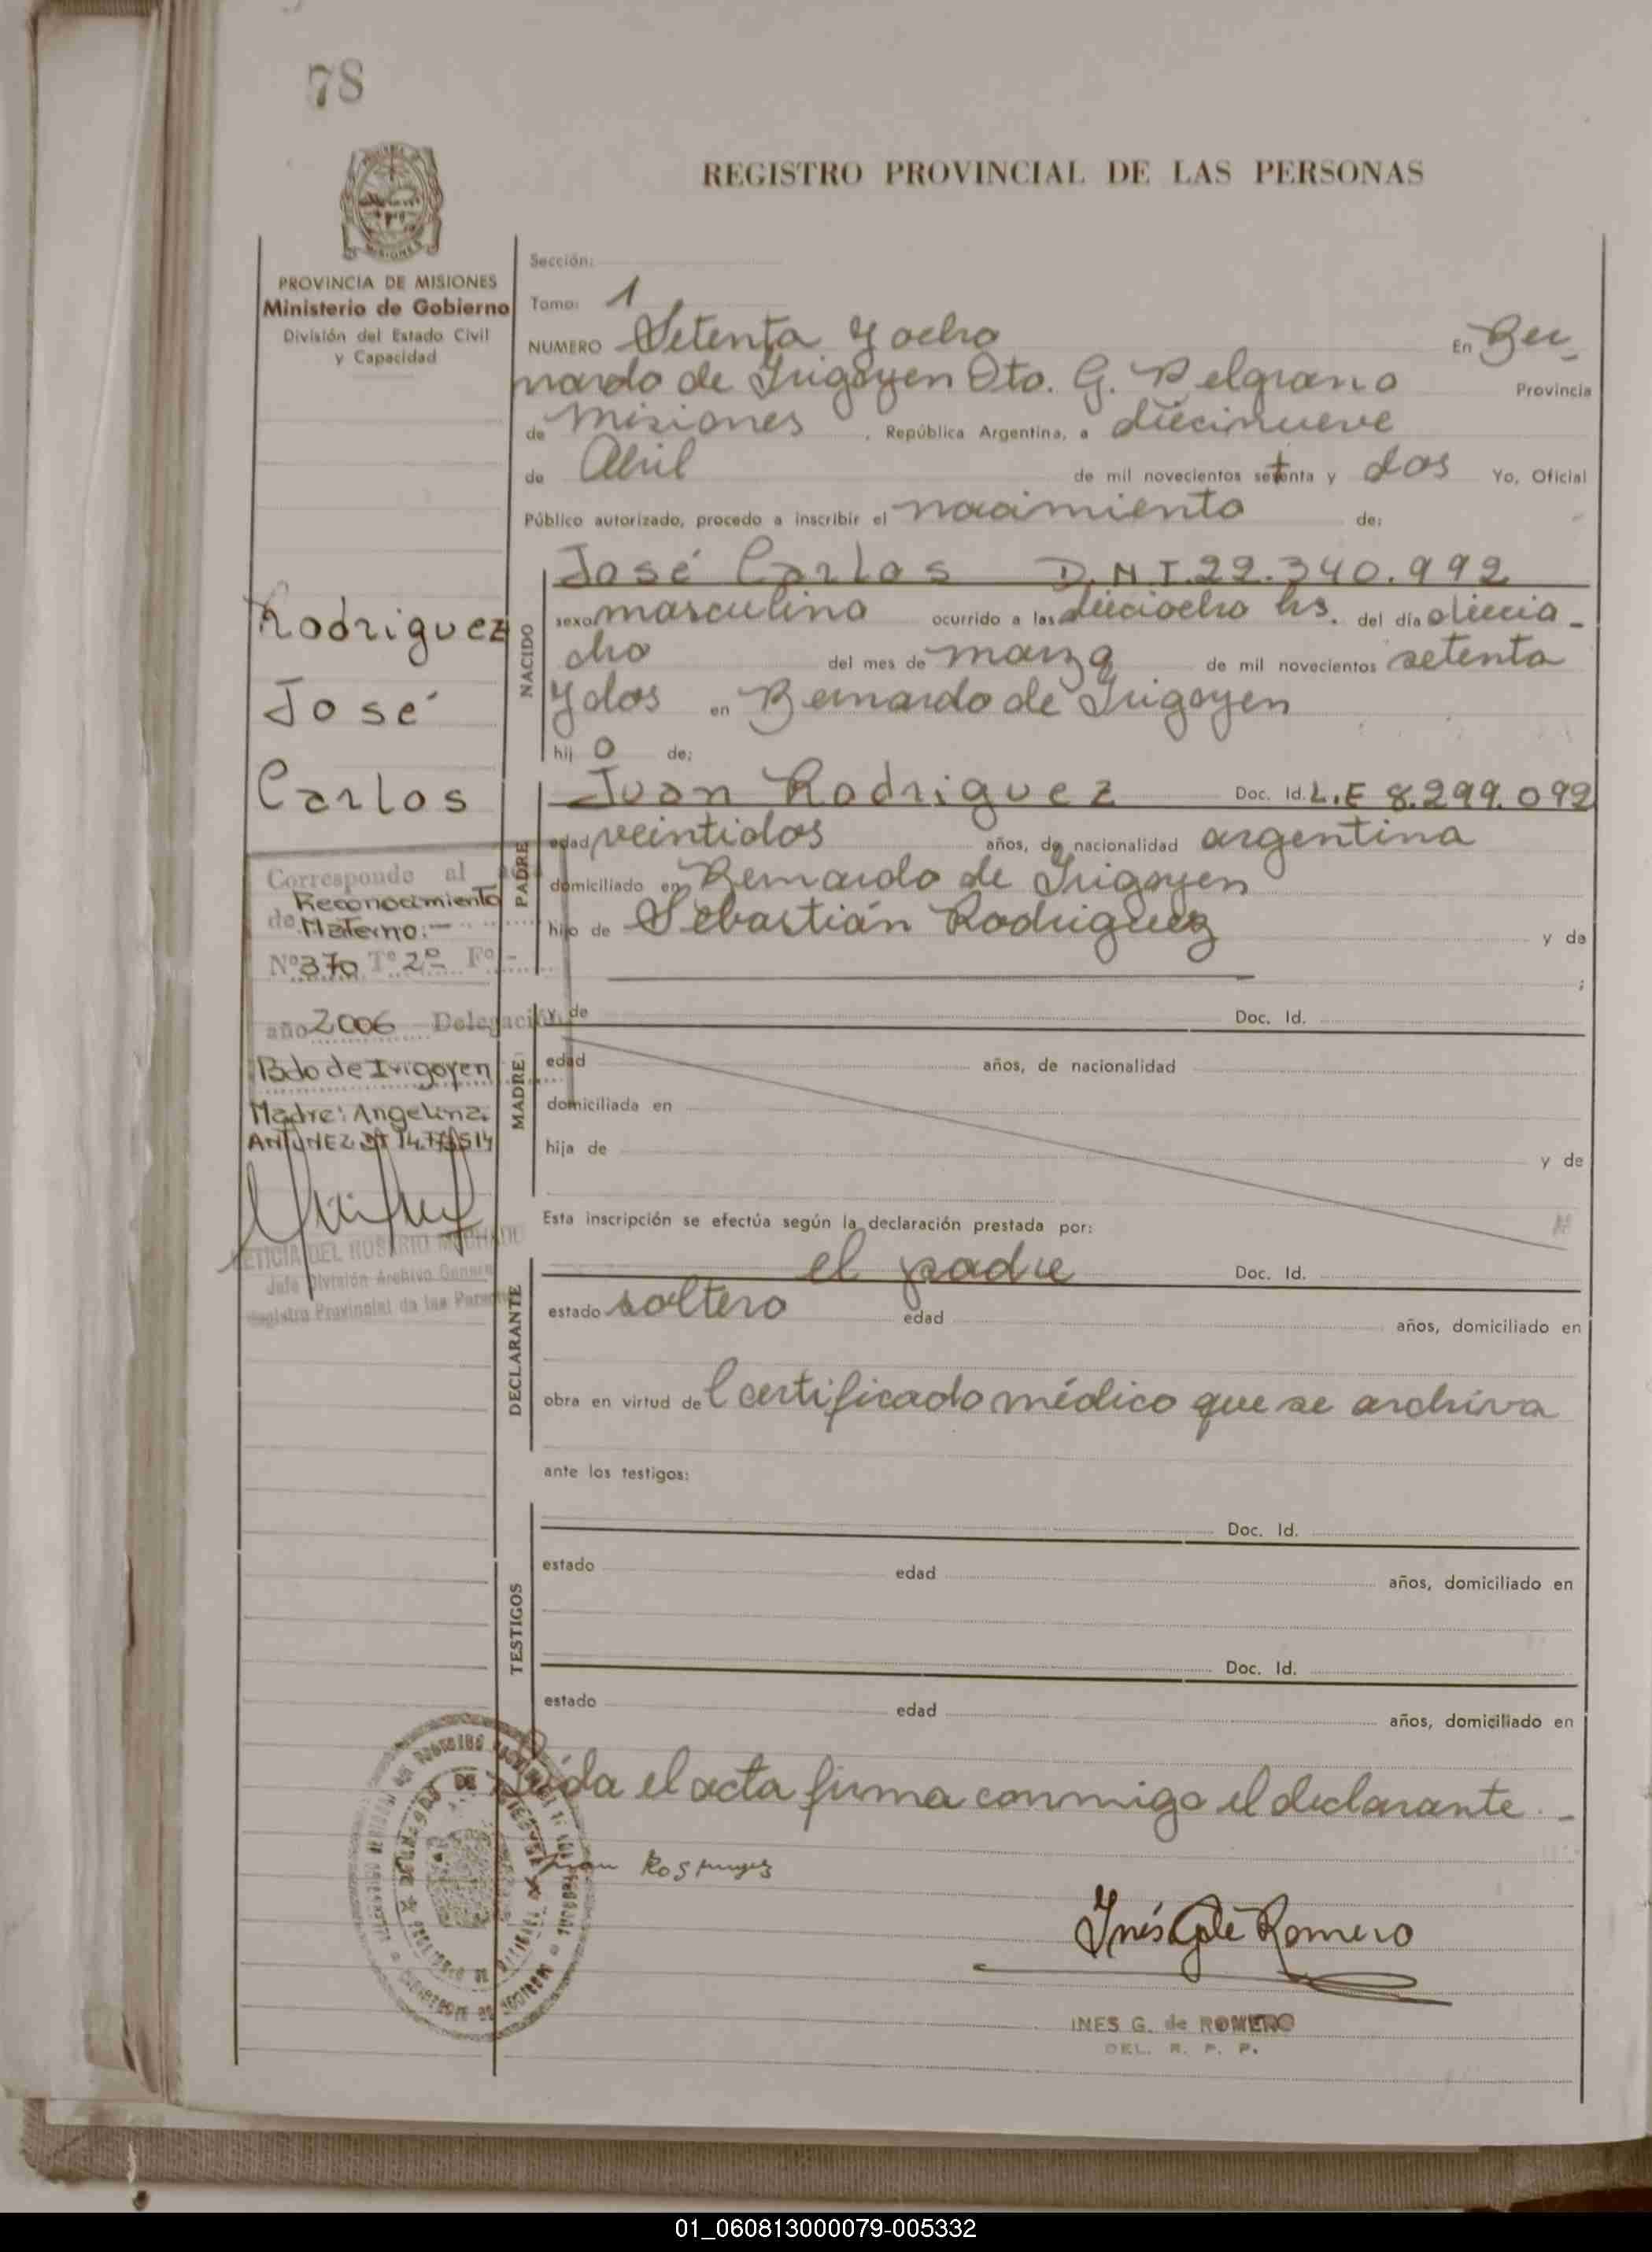 78
REGISTRO PROVINCIAL DE LAS PERSONAS
MISIONES
PROVINCIA DE MISIONES
Ministerio de Gobierno
División del Estado Civil
y Capacidad
Sección:
Tomo: 1
NUMERO Setenta y ocho En Ber_
nardo de Irigoyen Dto. G. Belgrano Provincia
de Misiones , República Argentina, a diecinueve
de Abril de mil novecientos setenta y dos Yo, Oficial
Público autorizado, procedo a inscribir el nacimiento de:
Rodriguez
José
Carlos
NACIDO
José Carlos D.N.I. 22.340.992
sexo masculino ocurrido a las dieciocho hs. del día diecio_
cho del mes de marzo de mil novecientos setenta
y dos en Bernardo de Irigoyen
hij o de:
PADRE
Juan Rodriguez Doc. Id. L.E 8.299.092
edad veintidos años, de nacionalidad argentina
domiciliado en Bernardo de Irigoyen
hijo de Sebastián Rodriguez y de
;
Corresponde al
Reconocimiento
de Materno.-
Nº 370 Tº 2º Fº -
año 2006 Delegación
Bdo de Irigoyen
Madre: Angelina
ANTUNEZ
LETICIA DEL ROSARIO MACHADO
Jefe División Archivo General
Registro Provincial de las Personas
MADRE
y de Doc. Id.
edad años, de nacionalidad
domiciliada en
hija de y de
Esta inscripción se efectúa según la declaración prestada por:
DECLARANTE
el padre Doc. Id.
estado soltero edad años, domiciliado en
obra en virtud de l certificado médico que se archiva
ante los testigos:
TESTIGOS
Doc. Id.
estado edad años, domiciliado en
Doc. Id.
estado edad años, domiciliado en
Leída el acta firma conmigo el declarante._
Juan
Inés G de Romero
INES G. de ROMERO
DEL. R. P. P.
01_060813000079-005332